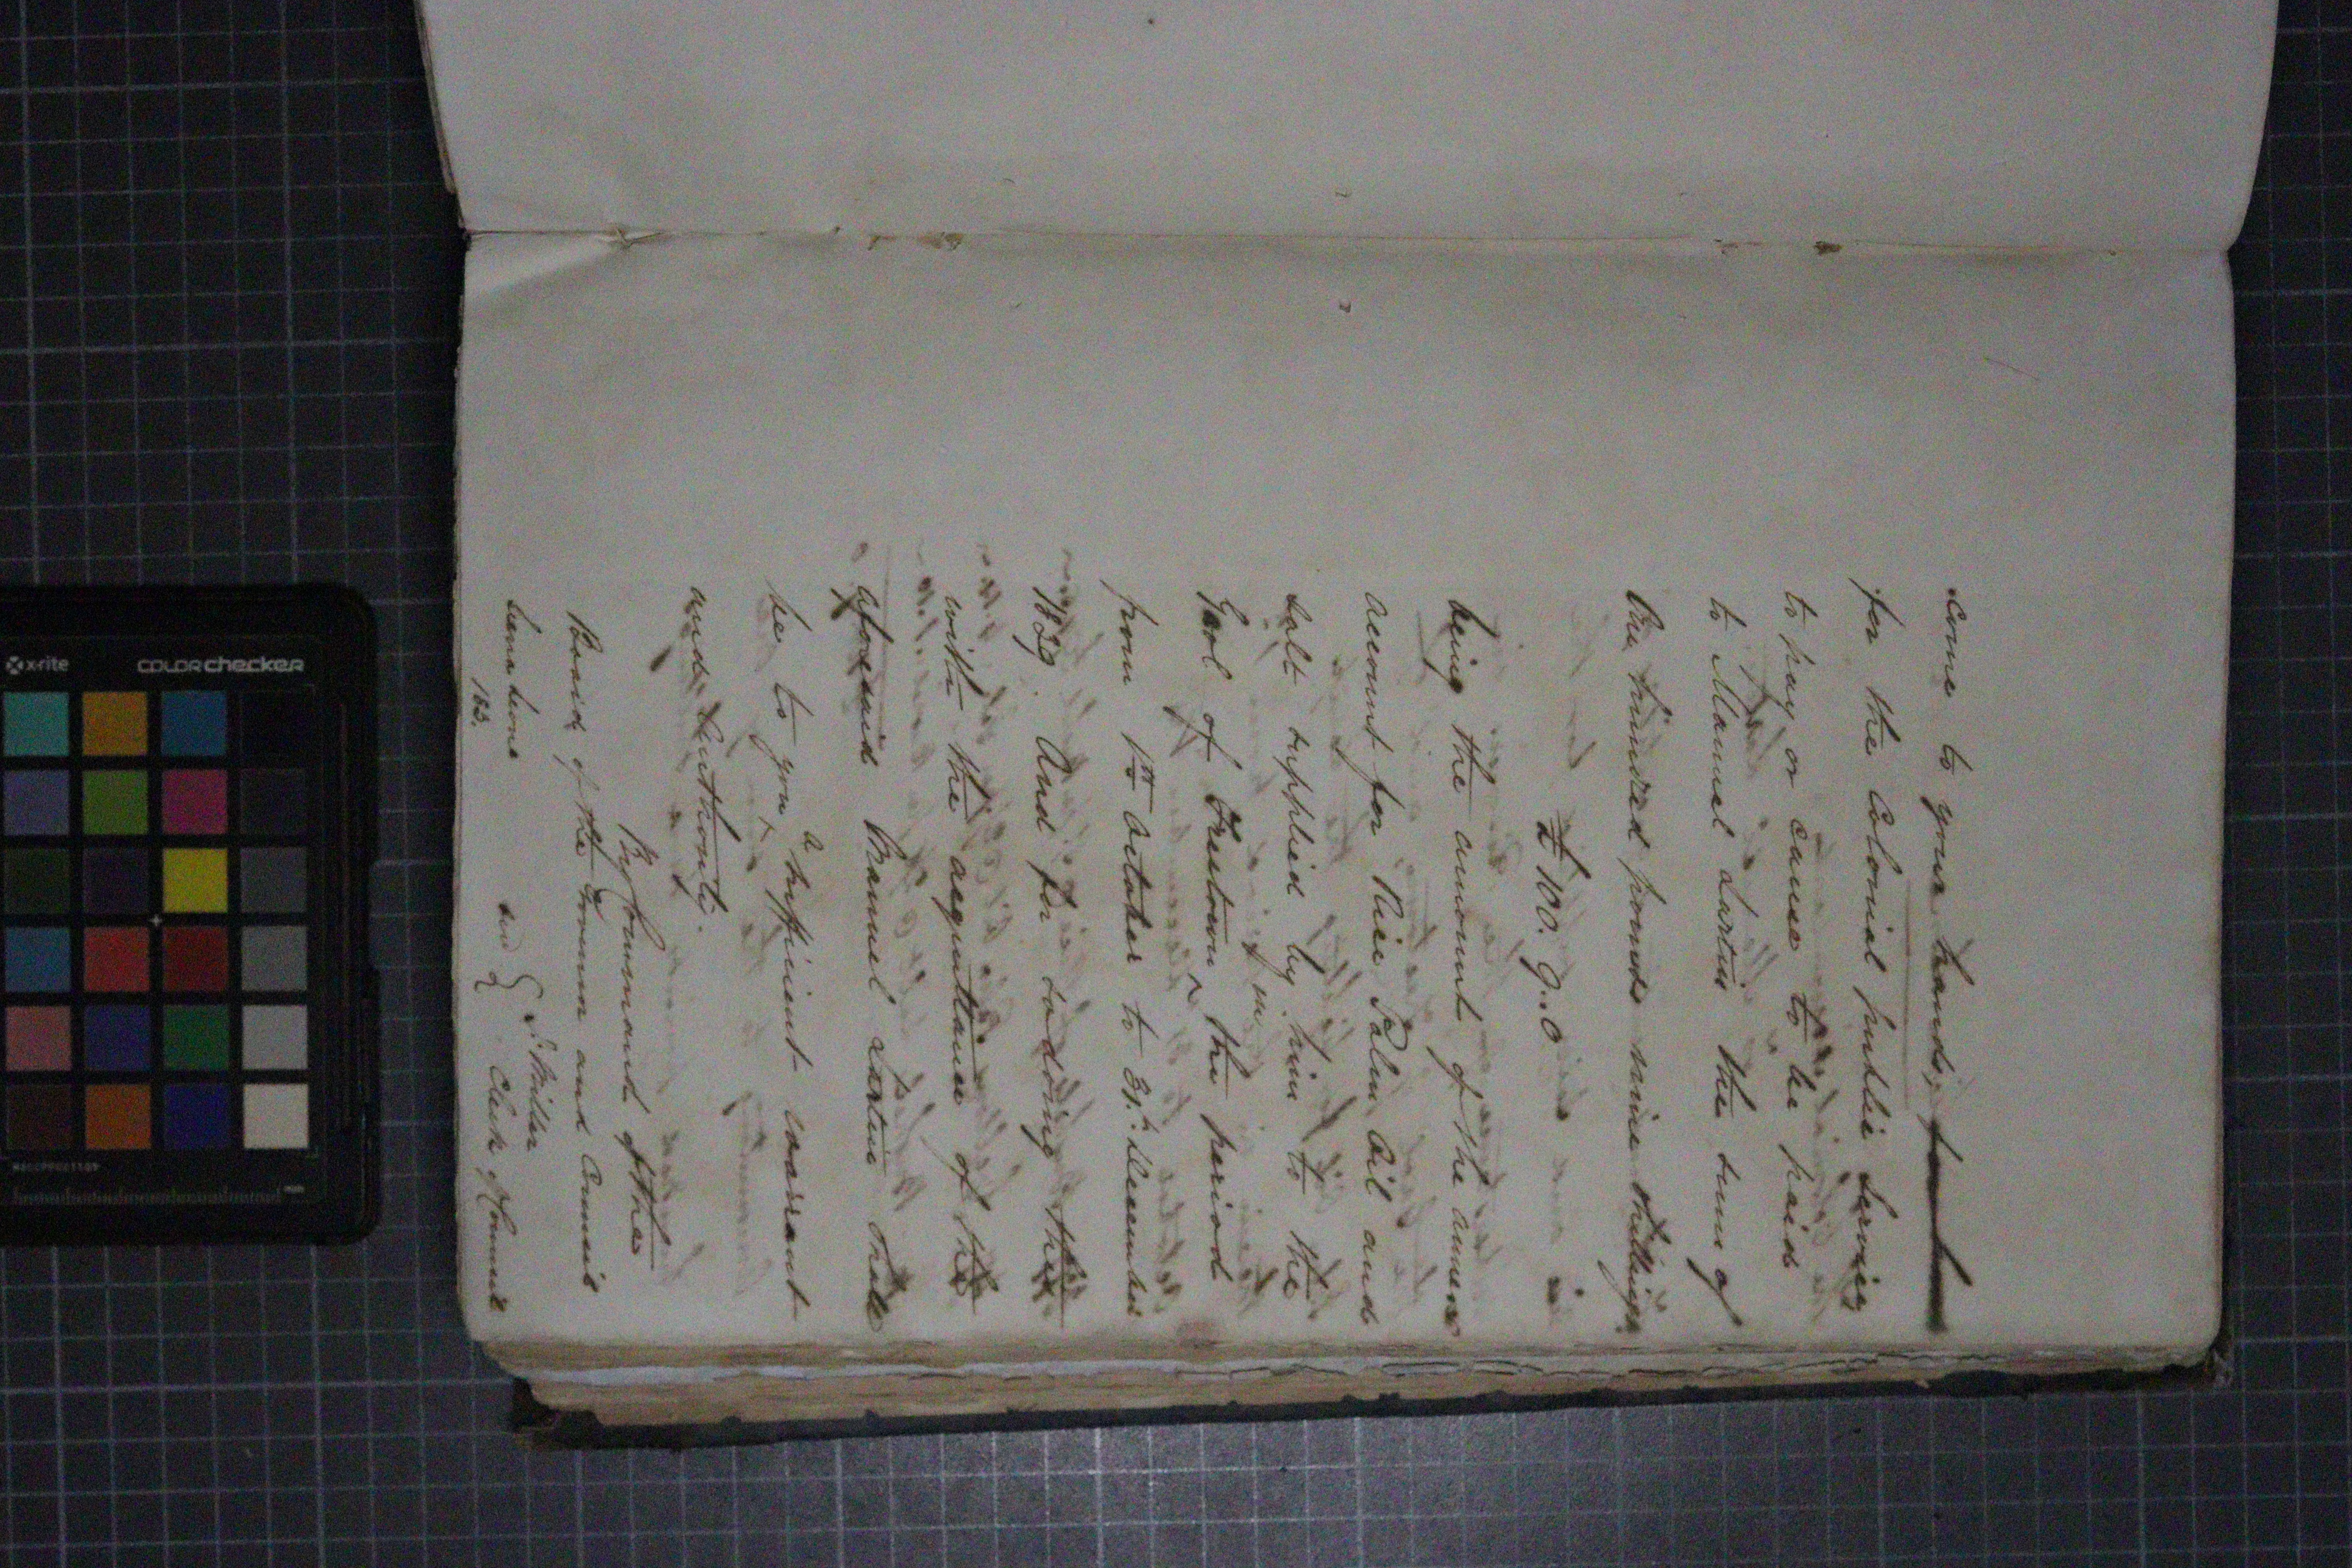 come to your hands,
for the Colonial public Service
to pay or cause to be paid
to Manuel the sum of
One hundred pounds nine shillings
£100. 9..0
being the amount of the annexed
account for Rice Palm Oil and
Salt supplied by him to the
Gaol of Freetown in the period
from 1st October to 31st December
1829. And for so doing this
with the acquittance of the
aforesaid Manuel shall
be to you a sufficient warrant
and Authority.
By Command of the
Board of the Govr and Council
Sierra Leone
183.
Clerk of Council
x-rite
colorchecker